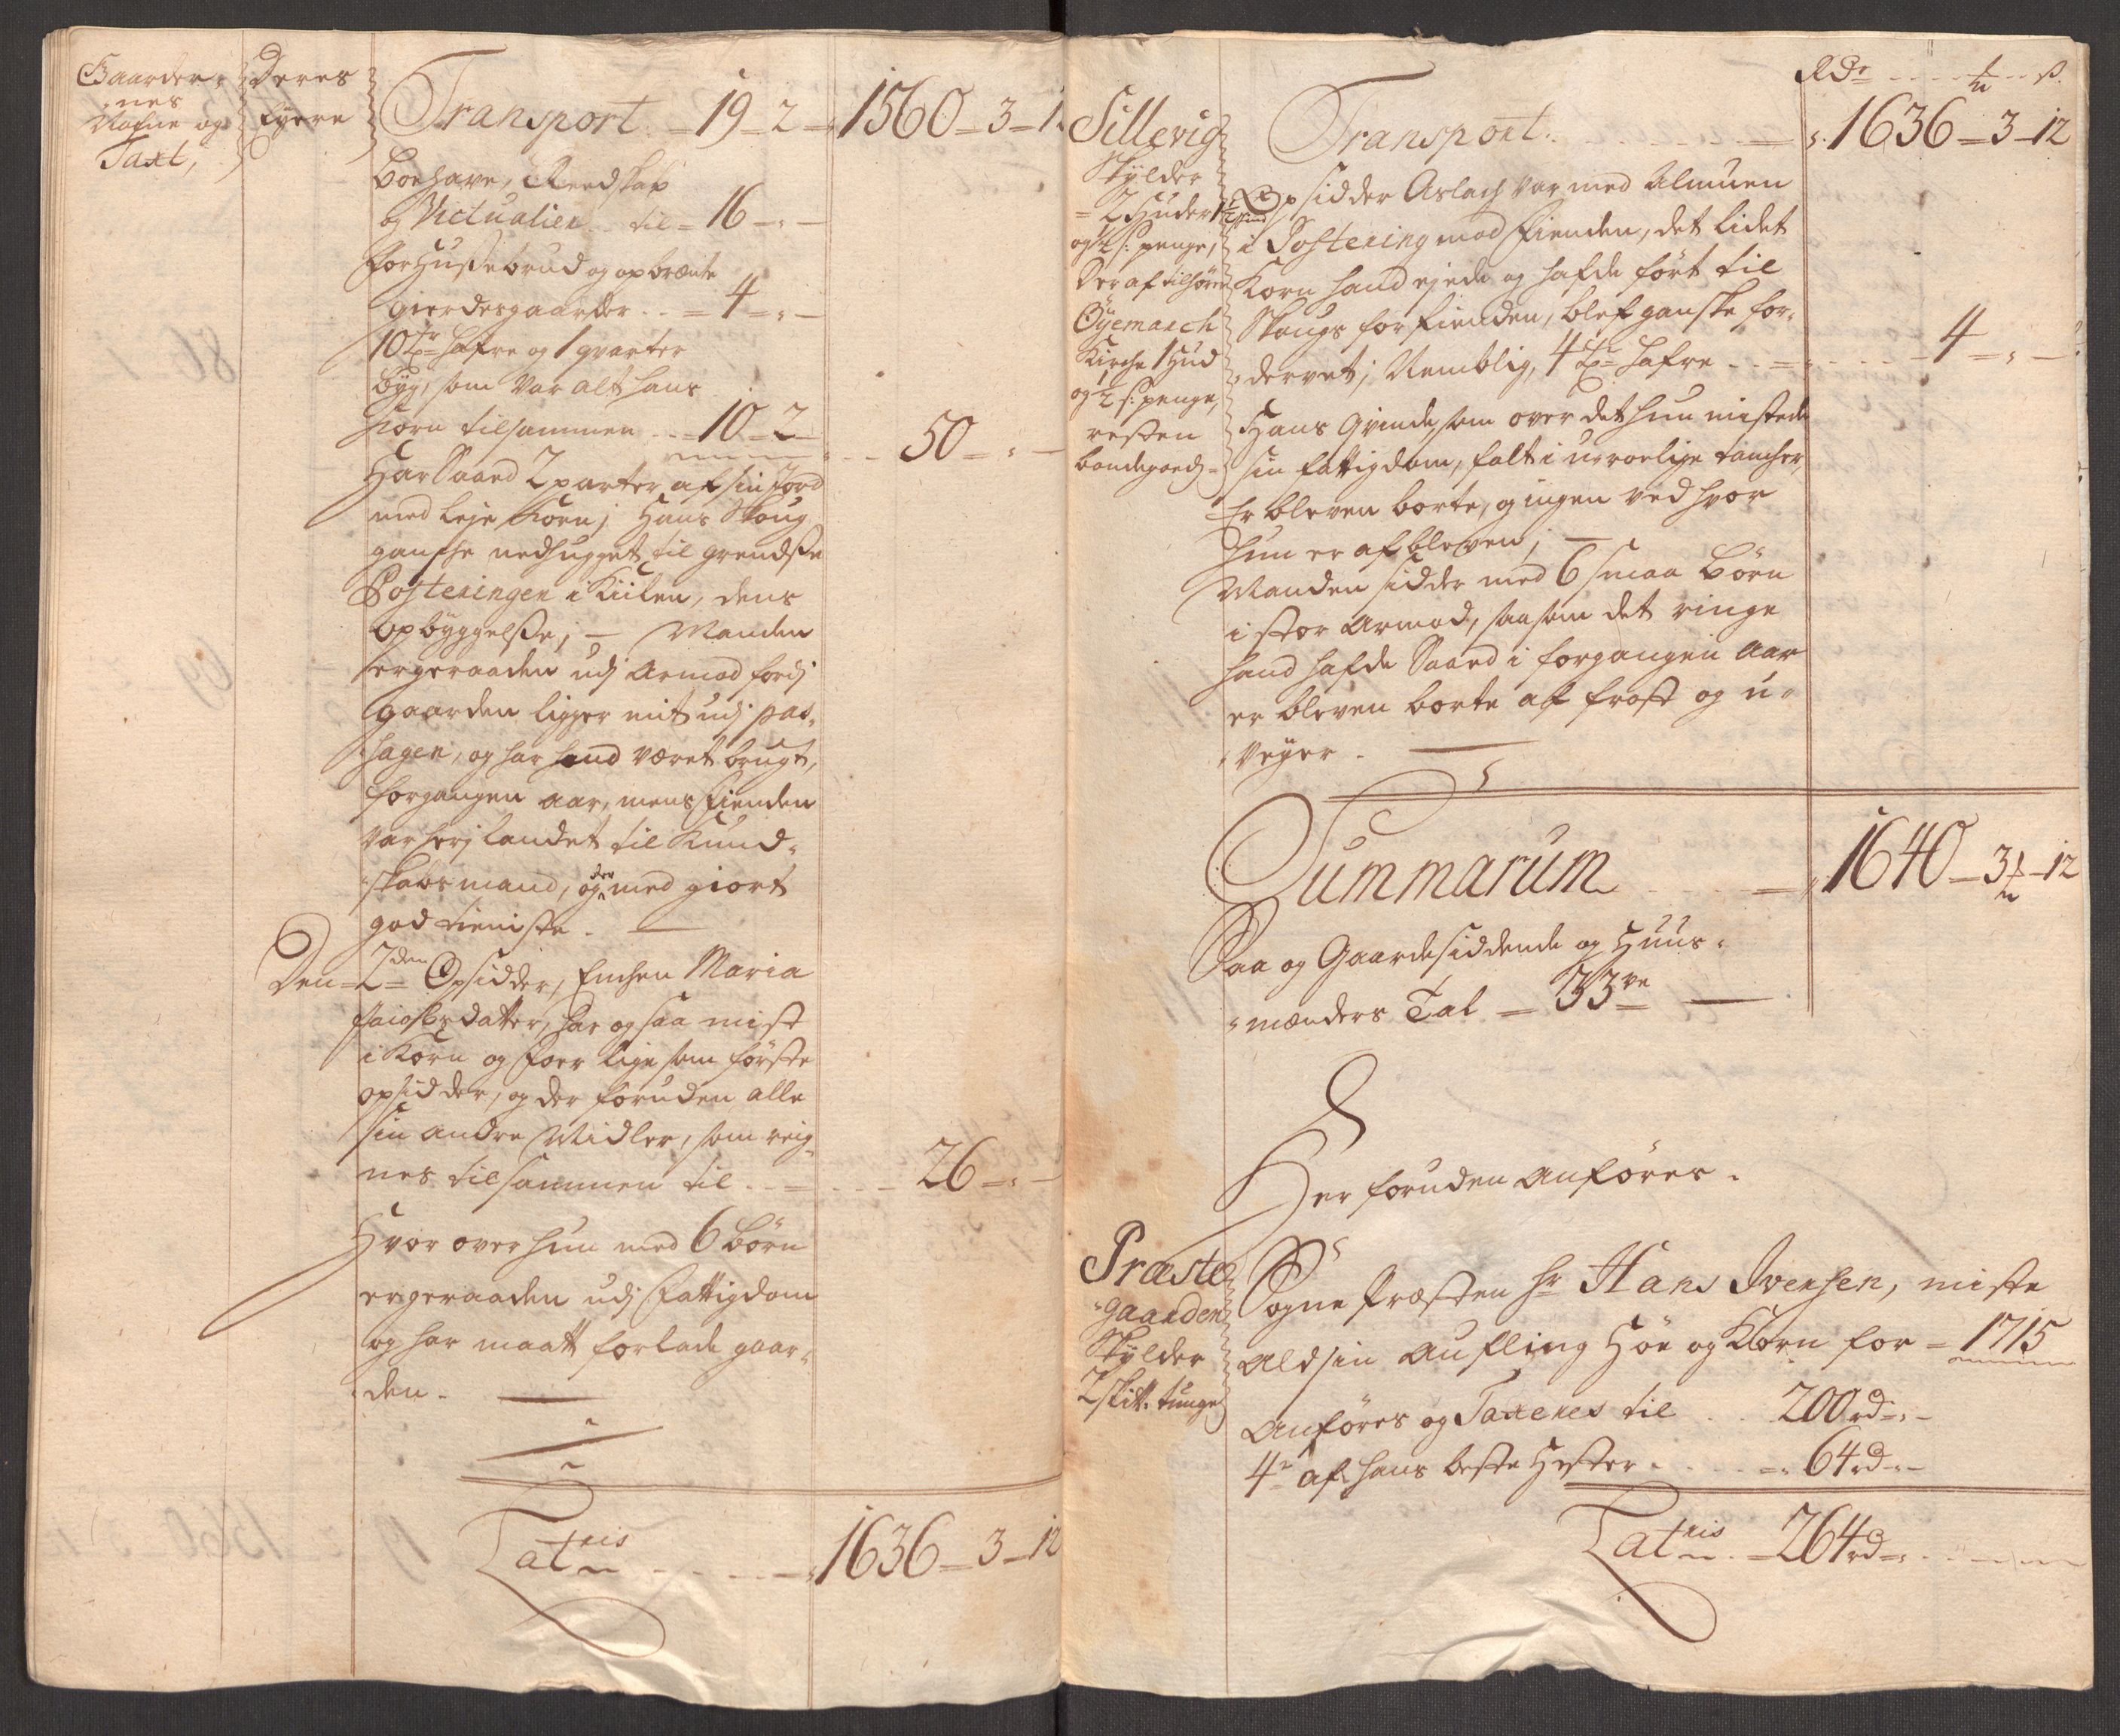 Gaarder-
nes
Nafne og
Taxt,
Deres
Eyere
Transport. = 19 = 2 = 1560 = 3 = 1
Boehave, Reedskap
og Victualier .. til = 16 - " -
for Hussebrud og opbrænte
gierdesgaarder .. = 4 = " -
10 Tr. hafre og 1 qvarter
byg, som var alt hans
korn tilsammen .. = 10 = 2 -
50 = " -
Har Saaed 2 parter af sin Jord
med leje korn; Hans Skoug
gansche nedhugget til grendsse
Posteringen i Kiilen, dens
opbyggelsse; — Manden
er geraaden udj Armod fordj
gaarden ligger mit udj pas-
hagen, og har hand været brugt,
forgangen aar, mens fienden
var herj Landet til Kund-
skabs mand, og der med giort
god tieniste. —
Den = 2den = Opsidder, Enchen Maria
har og saa mist
i Korn og foer lige som förste
opsidder, og der foruden alle
sin andre Midler, som reig-
nes til sammen til .. = ... 26 = " -
Hvor over hun med 6 börn
er geraaden udj fattigdom
og har maatt forlade gaar-
den. —
Latris .... = 1636 = 3 = 12
Rdr ... ß.
Sillevig
Skylder
= 2 Huder 1½ skind
og 2 s: penge,
Der af tilhörer
Öÿemarch
Kirche 1 Hud
og 2 s: penge,
resten
bondegoeds =
Transport. ..... = 1636 = 3 = 12
Opsidder Aslach var med Almuen
i Postering mod fienden, det lidet
Korn hand ejede og hafde fört til
Skougs for fienden, blef ganske for-
dervet; Nemblig, 4 Tr. hafre .. = ... 4 = " -
Hans Qvinde, som over det hun mistede
sin fattigdom, falt i u-roelige tancher,
Er bleven borte, og ingen ved hvor
hun er af bleven; —
Manden sidder med 6 smaa Börn
i stor armod, saasom det ringe
hand hafde Saaed i forgangen Aar
er bleven borte af frost og u-
veyer. —
Summarum .... = 1640 = 3 = 12
Paa og Gaardesiddende og Huus-
mænders Tal = 33ve —
Her foruden anföres.
Præste
gaarden
Skylder
2 skitt: tunge
Sogne Præsten hr Hans Ivensen, miste
Ald sin aufling Höe og Korn for = 1715
Anföres og Taxeres til .. 200 rd = " -
4r af hans beste Hester .... = 64 rd = " -
Latris .. = 264 rd = " ....